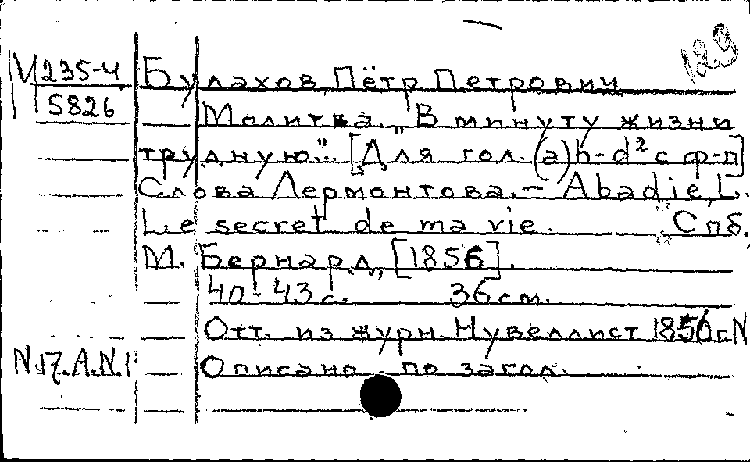 129
М 235-4 Булахов, Пётр Петрович
5826 Молитва. "В минуту жизни
трудную". [Для гол. (a)h-d² с ф-п]
Слова Лермонтова. – Abadie, L.
Le secret de ma vie. Спб.
М. Бернард, [1856].
40-43 с. 36 см.
Отт. из журн. Нувеллист 1856 г. N
Описано по загол.